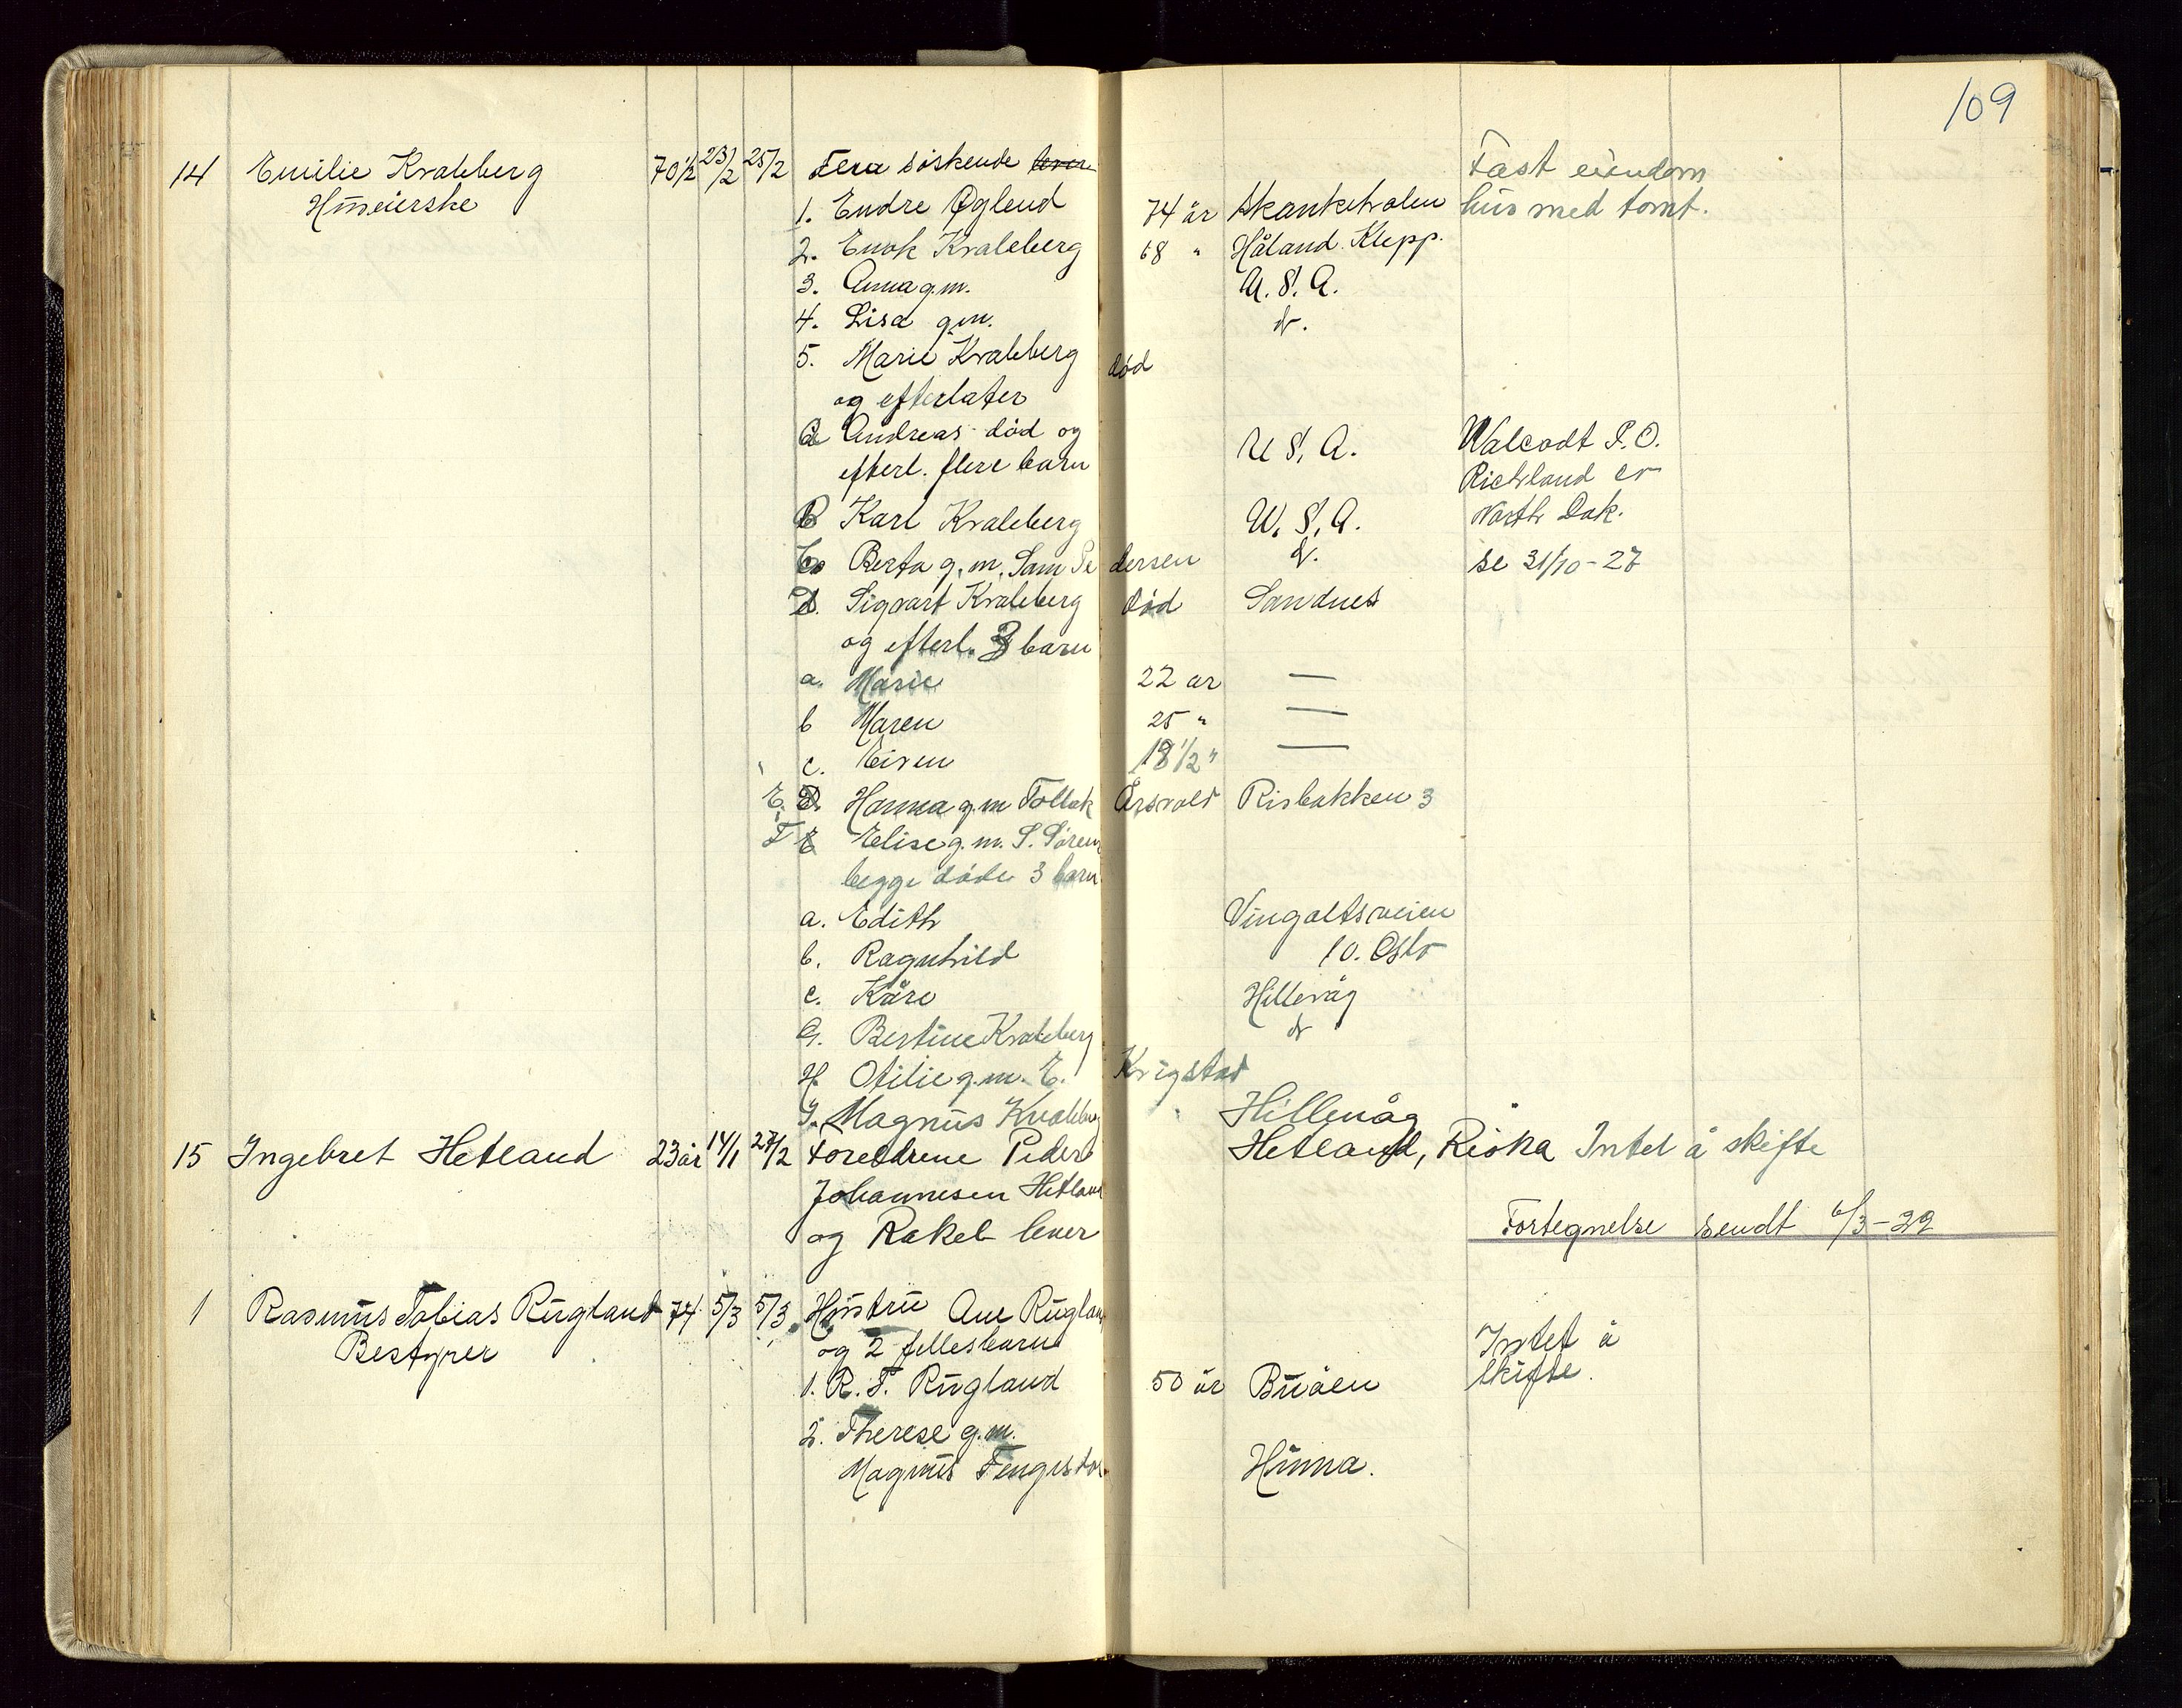 109
14 Emilie Kvaleberg 70 1/2 23/2 25/2 Flera söskende lever Fast eiendom
Huseierske 1. Endre Øglend 74 år Skankeholen hus med tomt.
2. Enok Kvaleberg 68 " Håland Klepp.
3. Anna g.m. U. S. A.
4. Lisa g.m. do.
5. Marie Kvaleberg død
og efterlater
A Andreas død og U S. A. Walcodt P.O.
efterl. flere barn Richland Co
B Karl Kvaleberg U. S. A. North Dak.
C Berta g. m. Sam Pedersen do. se 31/10-27
D. Sigvart Kvaleberg død Sandnes
og efterl. 3 barn
a. Marie 22 år —
b Maren 25 " —
c. Eiven 18 1/2 " —
E. D. Hanna g.m Tollak Årsvold Risbakken 3
F E Elise g. m. S. Sörens
begge døde 3 barn
a. Edith Vingoltsveien
b. Ragnhild 10. Oslo
c. Kåre Hillevåg
G. Bertine Kvaleberg do
H. Otilie g.m. E. Krigstad
I. Magnus Kvaleberg Hillevåg
15 Ingebret Hetland 23 år 14/1 27/2 Foreldrene Peder Hetland, Riska Intet å skifte
Johannesen Hetland
og Rakel lever Fortegnelse sendt 6/3-29
1 Rasmus Tobias Rugland 74 5/3 5/3 Hustru Ane Rugland Intet å
Bestyrer og 2 fellesbarn skifte.
1. R. T. Rugland 50 år Buöen
2. Therese g.m.
Magnus Hinna.